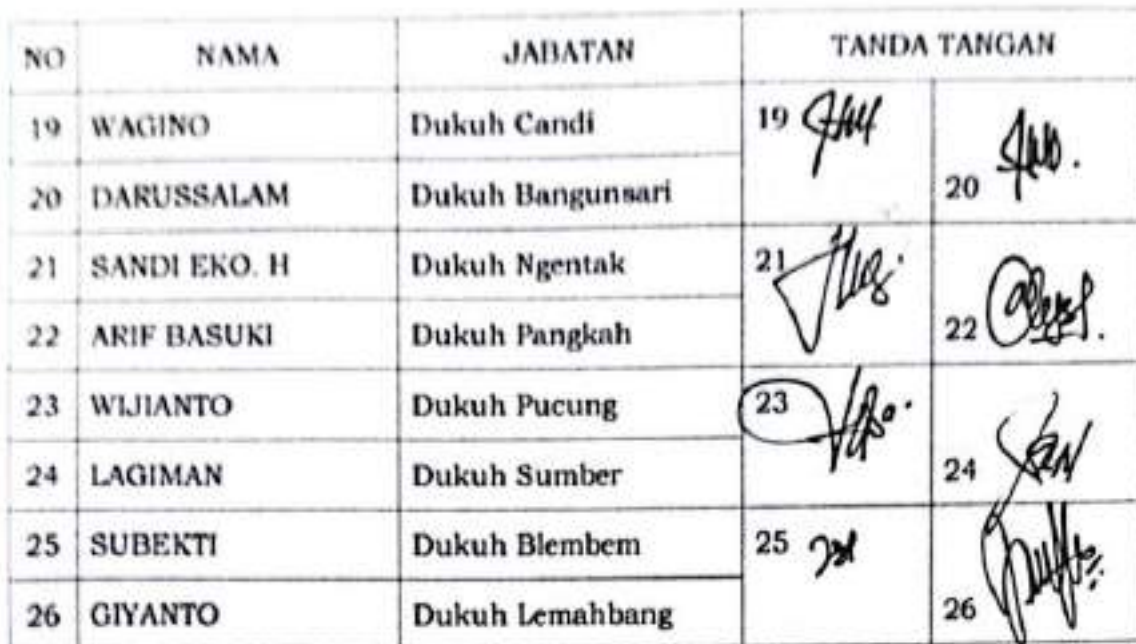 NO NAMA JABATAN TANDA TANGAN
19 WAGINO Dukuh Candi 19
20 DARUSSALAM Dukuh Bangunsari 20
21 SANDI EKO. H Dukuh Ngentak 21
22 ARIF BASUKI Dukuh Pangkah 22
23 WIJIANTO Dukuh Pucung 23
24 LAGIMAN Dukuh Sumber 24
25 SUBEKTI Dukuh Blembem 25
26 GIYANTO Dukuh Lemahbang 26